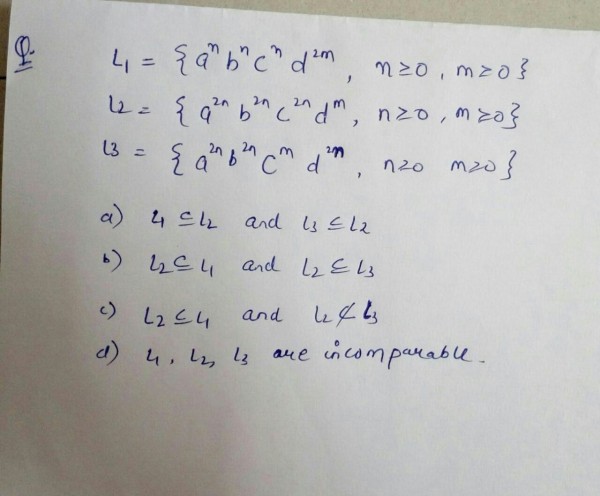 Q.
L₁ = { aⁿ bⁿ cⁿ d²ᵐ , n ≥ 0 , m ≥ 0 }
L2 = { a²ⁿ b²ⁿ c²ⁿ dᵐ , n ≥ 0 , m ≥ 0 }
L3 = { a²ⁿ b²ⁿ cᵐ d²ⁿ , n ≥ 0 m ≥ 0 }
a) L₁ ⊆ L2 and L3 ⊆ L2
b) L2 ⊆ L₁ and L2 ⊆ L3
c) L2 ⊆ L₁ and L2 ⊄ L3
d) L₁, L2, L3 are incomparable.